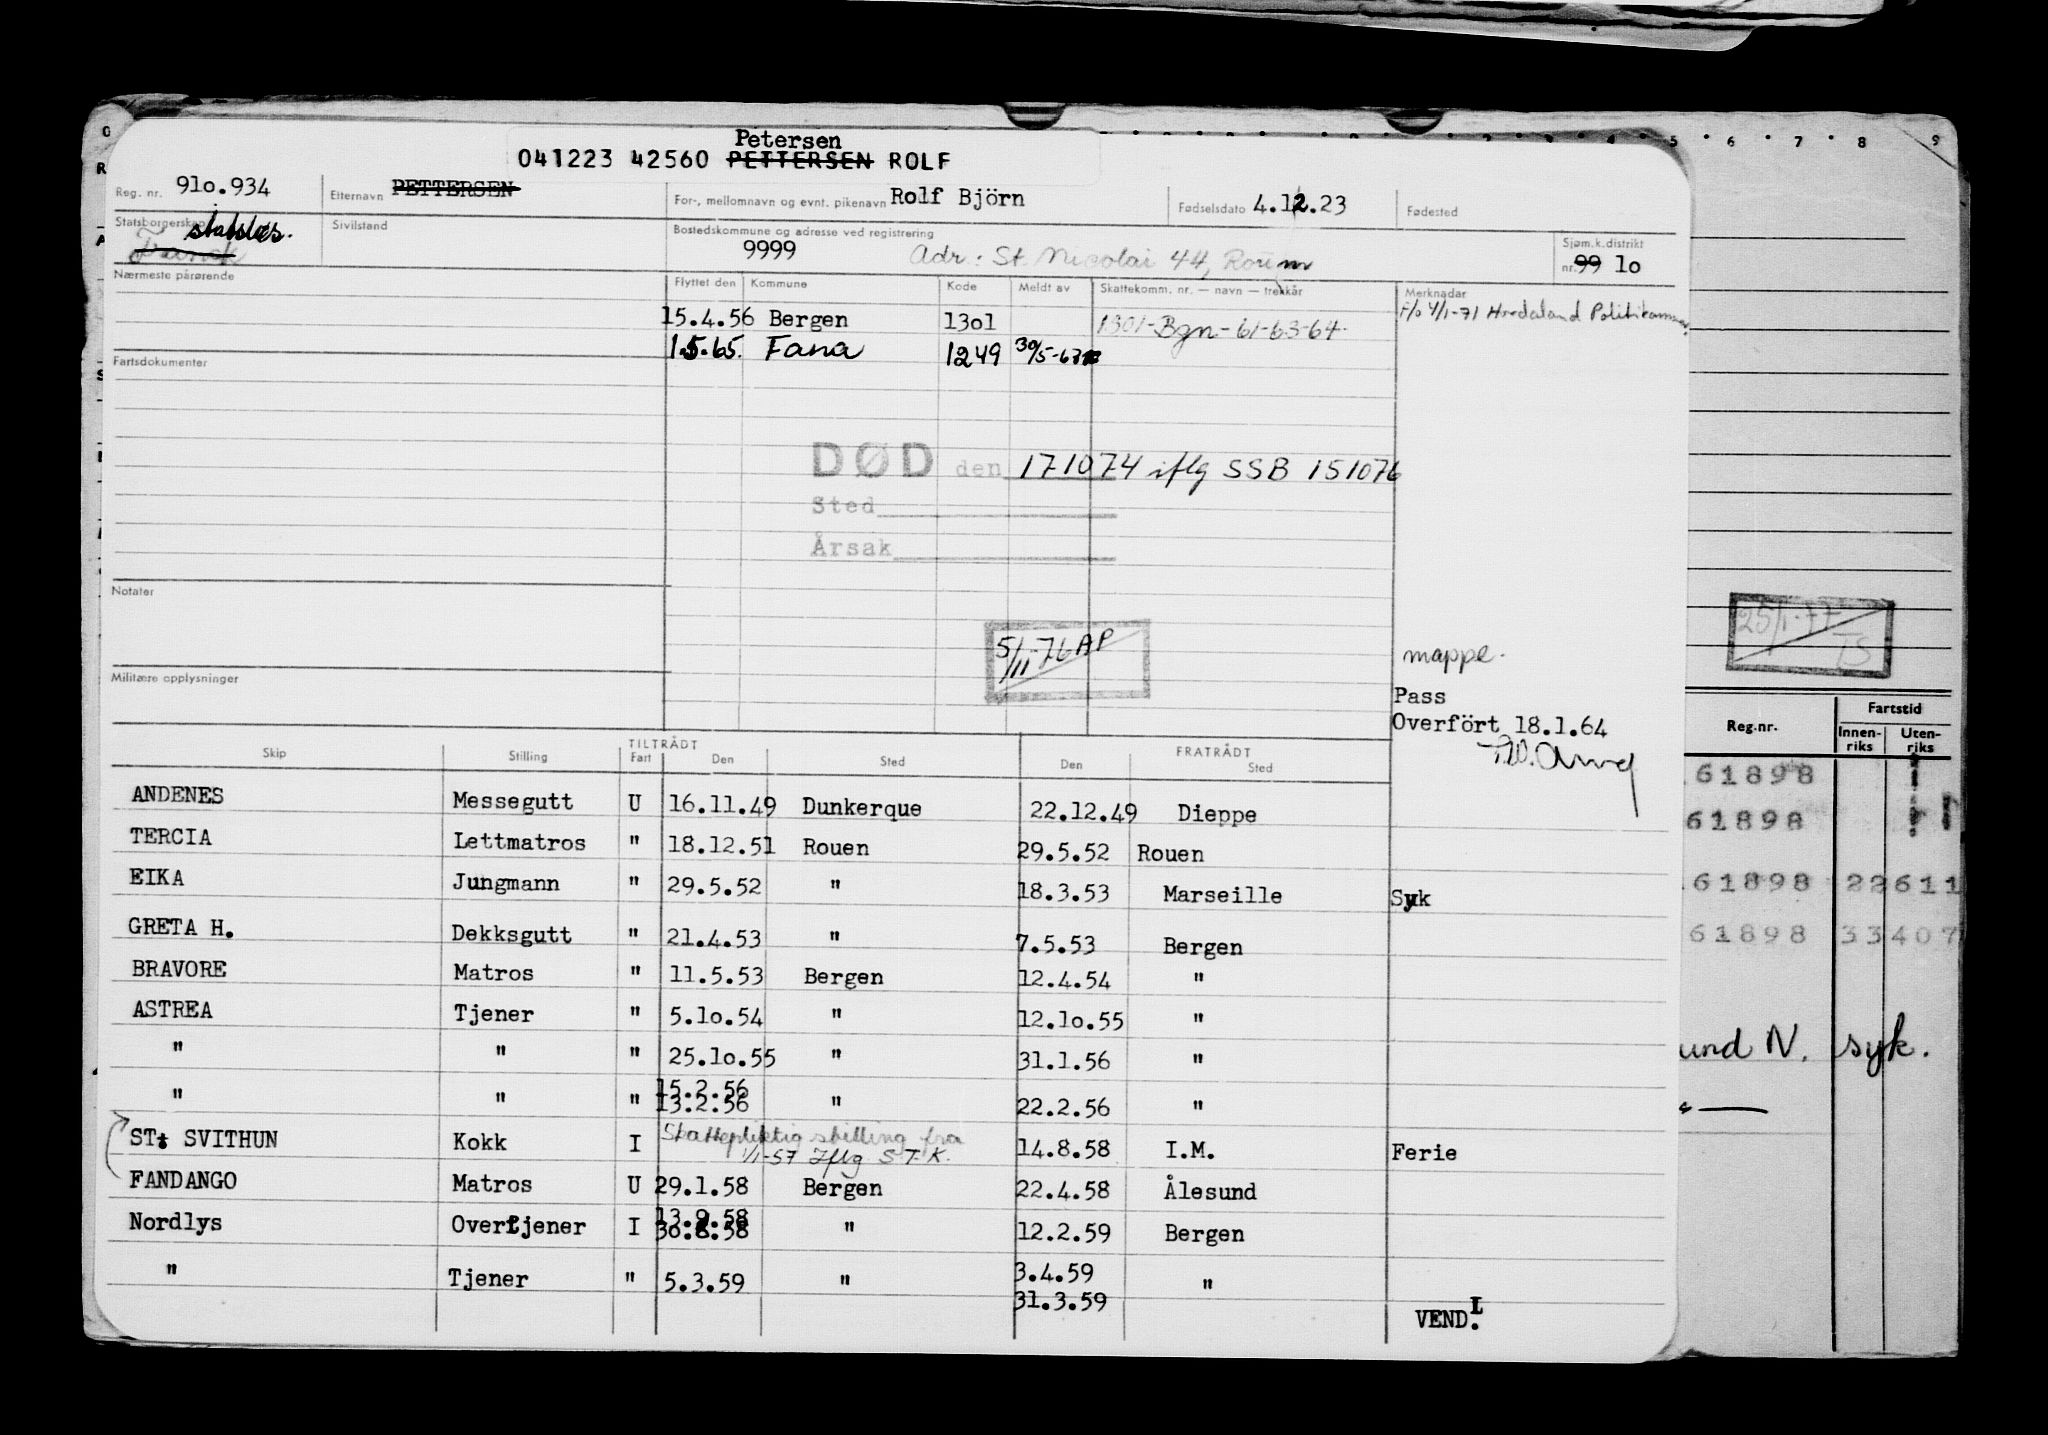 Petersen
041223 42560 PETTERSEN ROLF
Reg. nr. 91o.934 Etternavn PETTERSEN For-, mellomnavn og evnt. pikenavn Rolf Björn Fødselsdato 4.12.23 Fødested
Statsborgerskap statsløs. Sivilstand Bostedskommune og adresse ved registrering Sjøm.k.distrikt
Fransk 9999 Adr.: St. Nicolai 44, nr. 99 1o
Nærmeste pårørende Flyttet den Kommune Kode Meldt av Skattekomm. nr. — navn — trekkår Merknader
F/o 4/1-71 Hordaland Politikammer.
15.4.56 Bergen 13o1 1301-Bgn-61-63-64-
1.5.65. Fana 1249 30/5-67
Fartsdokumenter
DØD den 171074 iflg SSB 151076
Sted
Årsak
Notater
5/11-76 AP
25/1-77
TS
mappe.
Militære opplysninger
Pass
Overfört 18.1.64
Skip Stilling TILTRÅDT Fart Den Sted FRATRÅDT Den Sted
Reg.nr. Fartstid
Innenriks Utenriks
ANDENES Messegutt U 16.11.49 Dunkerque 22.12.49 Dieppe
61898
TERCIA Lettmatros " 18.12.51 Rouen 29.5.52 Rouen
61898
EIKA Jungmann " 29.5.52 " 18.3.53 Marseille Syk
61898 22611
GRETA H. Dekksgutt " 21.4.53 " 7.5.53 Bergen
61898 33407
BRAVORE Matros " 11.5.53 Bergen 12.4.54 "
ASTREA Tjener " 5.1o.54 " 12.1o.55 "
" " " 25.1o.55 " 31.1.56 "
und N. syk.
15.2.56
" " " 13.2.56 " 22.2.56 "
ST. SVITHUN Kokk I Skattepliktig stilling fra 14.8.58 I.M. Ferie
1/1-57 Iflg S.T.K.
FANDANGO Matros U 29.1.58 Bergen 22.4.58 Ålesund
13.9.58
Nordlys Overtjener I 30.8.58 " 12.2.59 Bergen
" Tjener " 5.3.59 " 3.4.59 "
31.3.59
VEND.